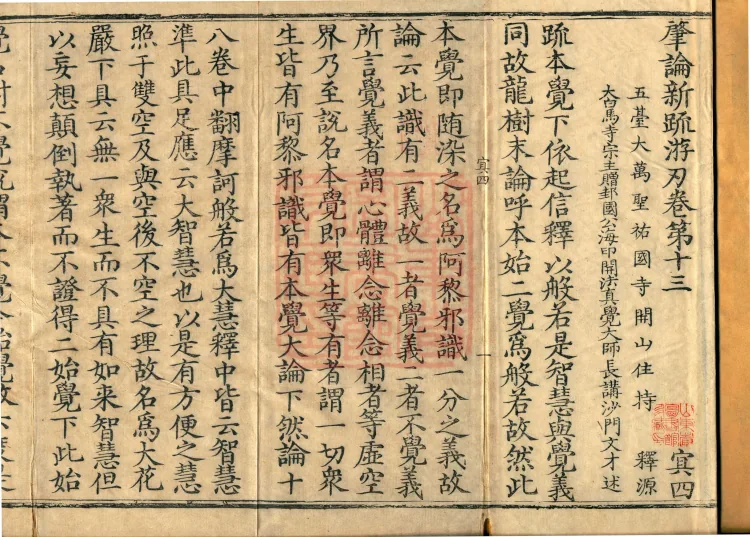 肇論新䟽游刃卷第十三 㝠四
五臺大萬聖祐國寺開山住持 釋源
大白馬寺宗主贈邽國公海印開法真覺大師長講沙門文才述
䟽本覺下依起信釋以般若是智慧與覺義
同故龍樹末論呼本始二覺爲般若故然此
㝠四 一
本覺即随染之名爲阿黎邪識一分之義故
論云此識有二義故一者覺義二者不覺義
所言覺義者謂心體離念離念相者等虛空
界乃至說名本覺即衆生等有者謂一切衆
生皆有阿黎邪識皆有本覺大論下然論十
八卷中翻摩訶般若爲大慧釋中皆云智慧
準此具足應云大智慧也以是有方便之慧
照于雙空及與空後不空之理故名爲大花
嚴下具云無一衆生而不具有如来智慧但
以妄想顛倒執著而不證得二始覺下此始